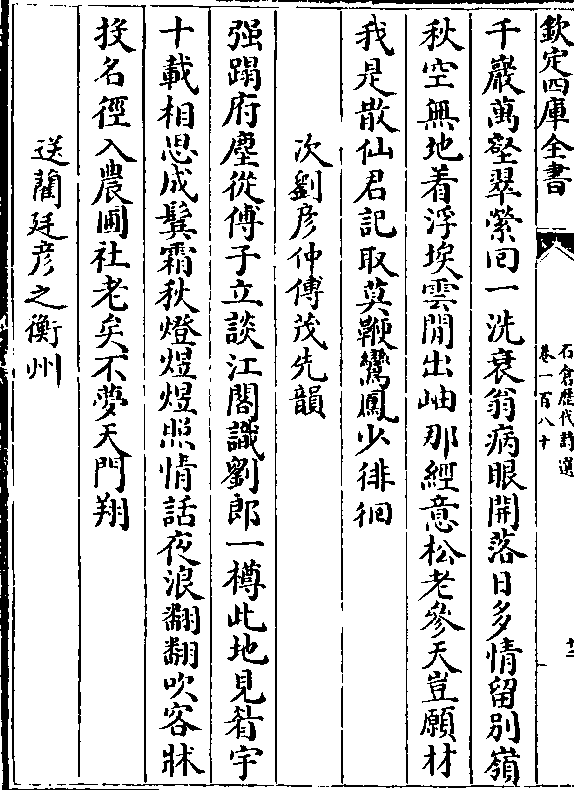 欽定四庫全書
石倉歷代詩選
卷一百八十
十二
千巖萬壑翠縈回一洗衰翁病眼開落日多情留別嶺
秋空無地着浮埃雲閒出岫那經意松老參天豈願材
我是散仙君記取莫鞭鸞鳳少徘徊
次劉彦仲傅茂先韻
强蹋府塵從傅子立談江閣識劉郎一樽此地見眉宇
十載相思成鬢霜秋燈煜煜照情話夜浪翻翻吹客牀
投名徑入農圃社老矣不夢天門翔
送藺廷彦之衡州